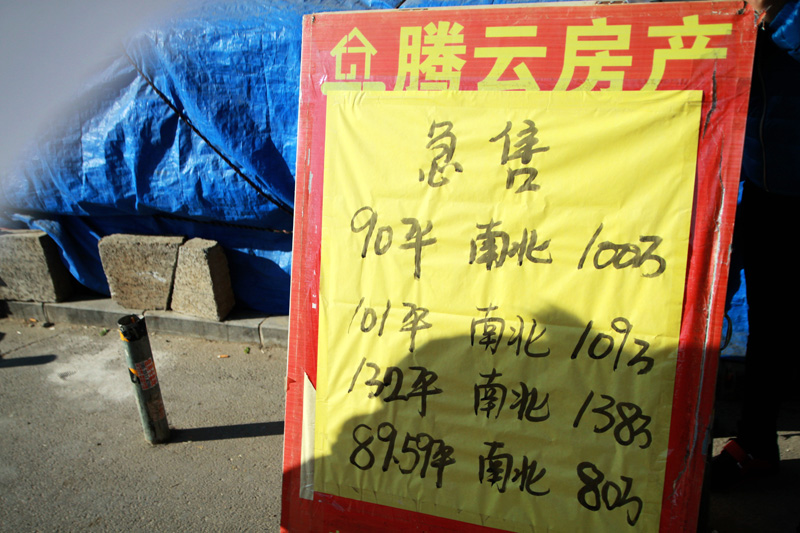 腾云房产
急售
90平 南北 100万
101平 南北 109万
132平 南北 138万
89.59平 南北 80万